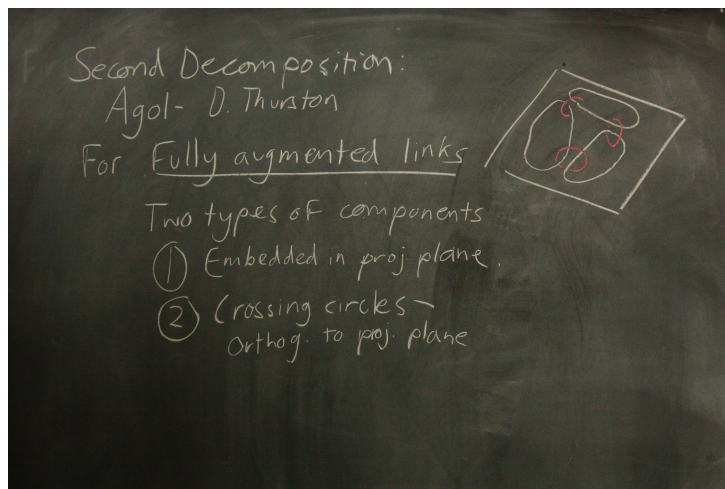 Second Decomposition:
Agol- D. Thurston
For Fully augmented links
Two types of components
① Embedded in proj plane.
② Crossing circles -
Orthog. to proj. plane